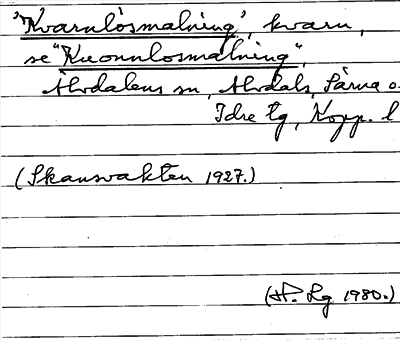 'Kvarnlösmalning', kvarn,
se "Kuonnlosmalning",
Älvdalens sn, Älvdals, Särna o.
Idre tg, Kopp. l
(Skansvakten 1927.)
(H. Lg 1980.)